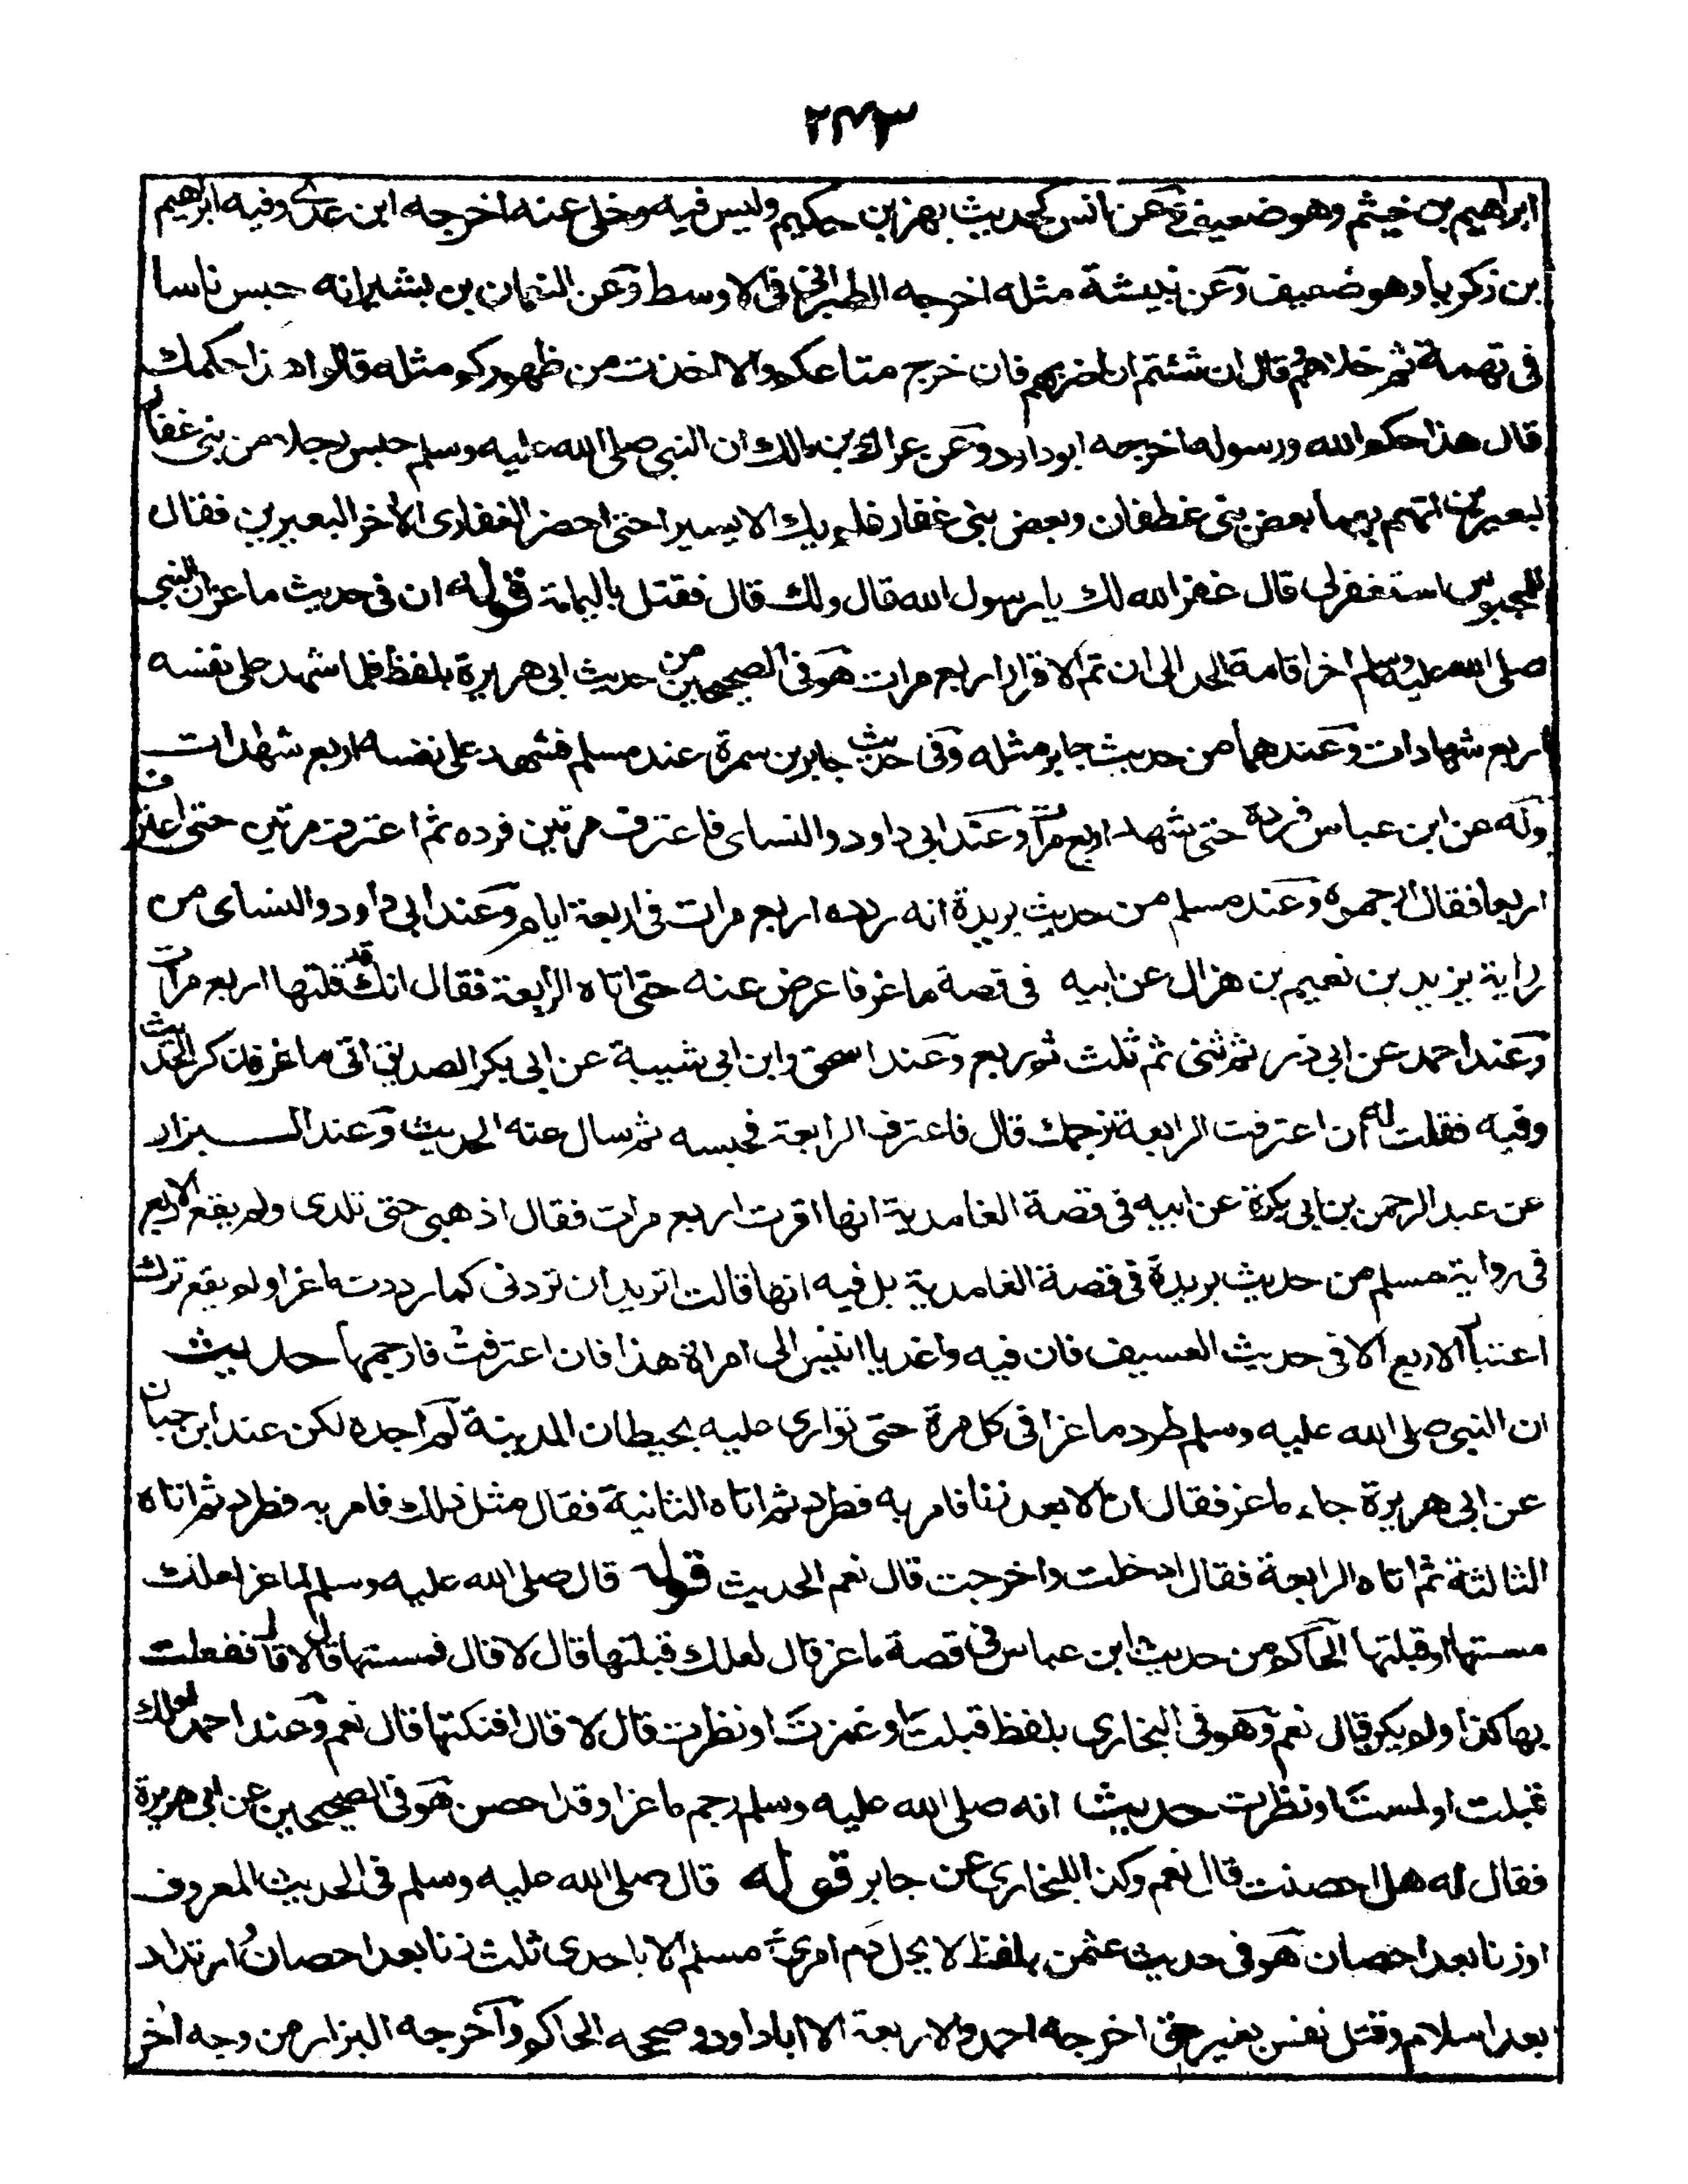 ٢٤٣
ابراهيم بن خيثم وهو ضعيف وعن انس كحديث بهز بن حكيم وليس فيه وخلى عنه اخرجه ابن عدي وفيه ابراهيم
بن زكريا وهو ضعيف وعن نبيشة مثله اخرجه الطبراني في الاوسط وعن النعمان بن بشير انه حبس ناسا
في تهمة ثم خلاهم وقال ان شئتم ان اضربهم فان خرج متاعكم والا اخذت من ظهوركم مثله قالوا هذا حكمك
قال هذا حكم الله ورسوله اخرجه ابوداود وعن عراك بن مالك ان النبي صلى الله عليه وسلم حبس رجلا من بني غفار
لبعيرين اتهم بهما بعض بني غطفان وبعض بني غفار فلم يك الا يسيرا حتى احضر الغفارى الاخر البعيرين فقال
للمحبوس استغفر لي قال غفر الله لك يا رسول الله قال ولك قال فقتل باليمامة قوله ان في حديث ماعز ان النبي
صلى الله عليه وسلم اخر اقامة الحد الى ان تم الاقرار اربع مرات هو في الصحيحين من حديث ابي هريرة بلفظ فلما شهد على نفسه
اربع شهادات وعندهما من حديث جابر مثله وفي حديث جابر بن سمرة عند مسلم فشهد على نفسه اربع شهادات
وله عن ابن عباس فرده حتى شهد اربع مرات وعند ابي داود والنساى فاعترف مرتين فرده ثم اعترف مرتين حتى اعترف
اربعا فقال ارجموه وعند مسلم من حديث بريدة انه ردده اربع مرات في اربعة ايام وعند ابي داود والنساى من
راية يزيد بن نعيم بن هزال عن ابيه في قصة ماعز فاعرض عنه حتى اتاه الرابعة فقال انك قد قلتها اربع مرات
وعند احمد عن ابي ذر ثم ثنى ثم ثلث ثم ربع وعند اسحق وابن ابي شيبة عن ابي بكر الصديق اتى ماعز فذكر الحديث
وفيه فقلت له ان اعترفت الرابعة رجمك قال فاعترف الرابعة فحبسه ثم سال عنه الحديث وعند البزار
عن عبد الرحمن بن ابي بكرة عن ابيه في قصة الغامدية انها اقرت اربع مرات فقال اذهبي حتى تلدى ولم يقع الاربع
في رواية مسلم من حديث بريدة في قصة الغامدية بل فيه انها قالت اتريد ان تردنى كما رددت ماعزا ولم يقع ترك
اعتبار الاربع الا في حديث العسيف فان فيه واغد يا انيس الى امراة هذا فان اعترفت فارجمها حديث
ان النبي صلى الله عليه وسلم طرد ماعزا في كل مرة حتى توارى عليه بحيطان المدينة لم اجده لكن عند ابن حبان
عن ابي هريرة جاء ماعز فقال ان الابعد زنا فامر به فطرد ثم اتاه الثانية فقال مثل ذلك فامر به فطرد ثم اتاه
الثالثة ثم اتاه الرابعة فقال ادخلت واخرجت قال نعم الحديث قوله قال صلى الله عليه وسلم لماعز لعلك
مسستها او قبلتها الحاكم من حديث ابن عباس في قصة ماعز قال لعلك قبلتها قال لا قال فمسستها قال لا قال ففعلت
بها كذا ولم يكن قال نعم وهو في البخاري بلفظ قبلت او غمزت او نظرت قال لا قال افنكتها قال نعم وعند احمد لعلك
قبلت او لمست او نظرت حديث انه صلى الله عليه وسلم رجم ماعزا وقد احصن هو في الصحيحين عن ابي هريرة
فقال له هل احصنت قال نعم وكذا للبخاري عن جابر قوله قال صلى الله عليه وسلم في الحديث المعروف
او زنا بعد احصان هو في حديث عثمن بلفظ لا يحل دم امرئ مسلم الا باحدى ثلث زنا بعد احصان وارتداد
بعد اسلام وقتل نفس بغير حق اخرجه احمد والاربعة الا اباداود وصححه الحاكم واخرجه البزار من وجه اخر